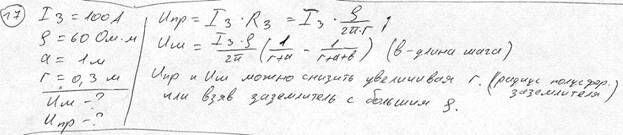 17 Iз = 100 А
ρ = 60 Ом·м
a = 1 м
r = 0,3 м
Uш - ?
Uпр - ?
Uпр = Iз · Rз = Iз · ρ/(2π·r) ;
Uш = Iз·ρ/2π (1/(r+a) - 1/(r+a+в)) (в-длина шага)
Uпр и Uш можно снизить увеличивая r. (радиус полусфер. заземлителя)
или взяв заземлитель с большим ρ.